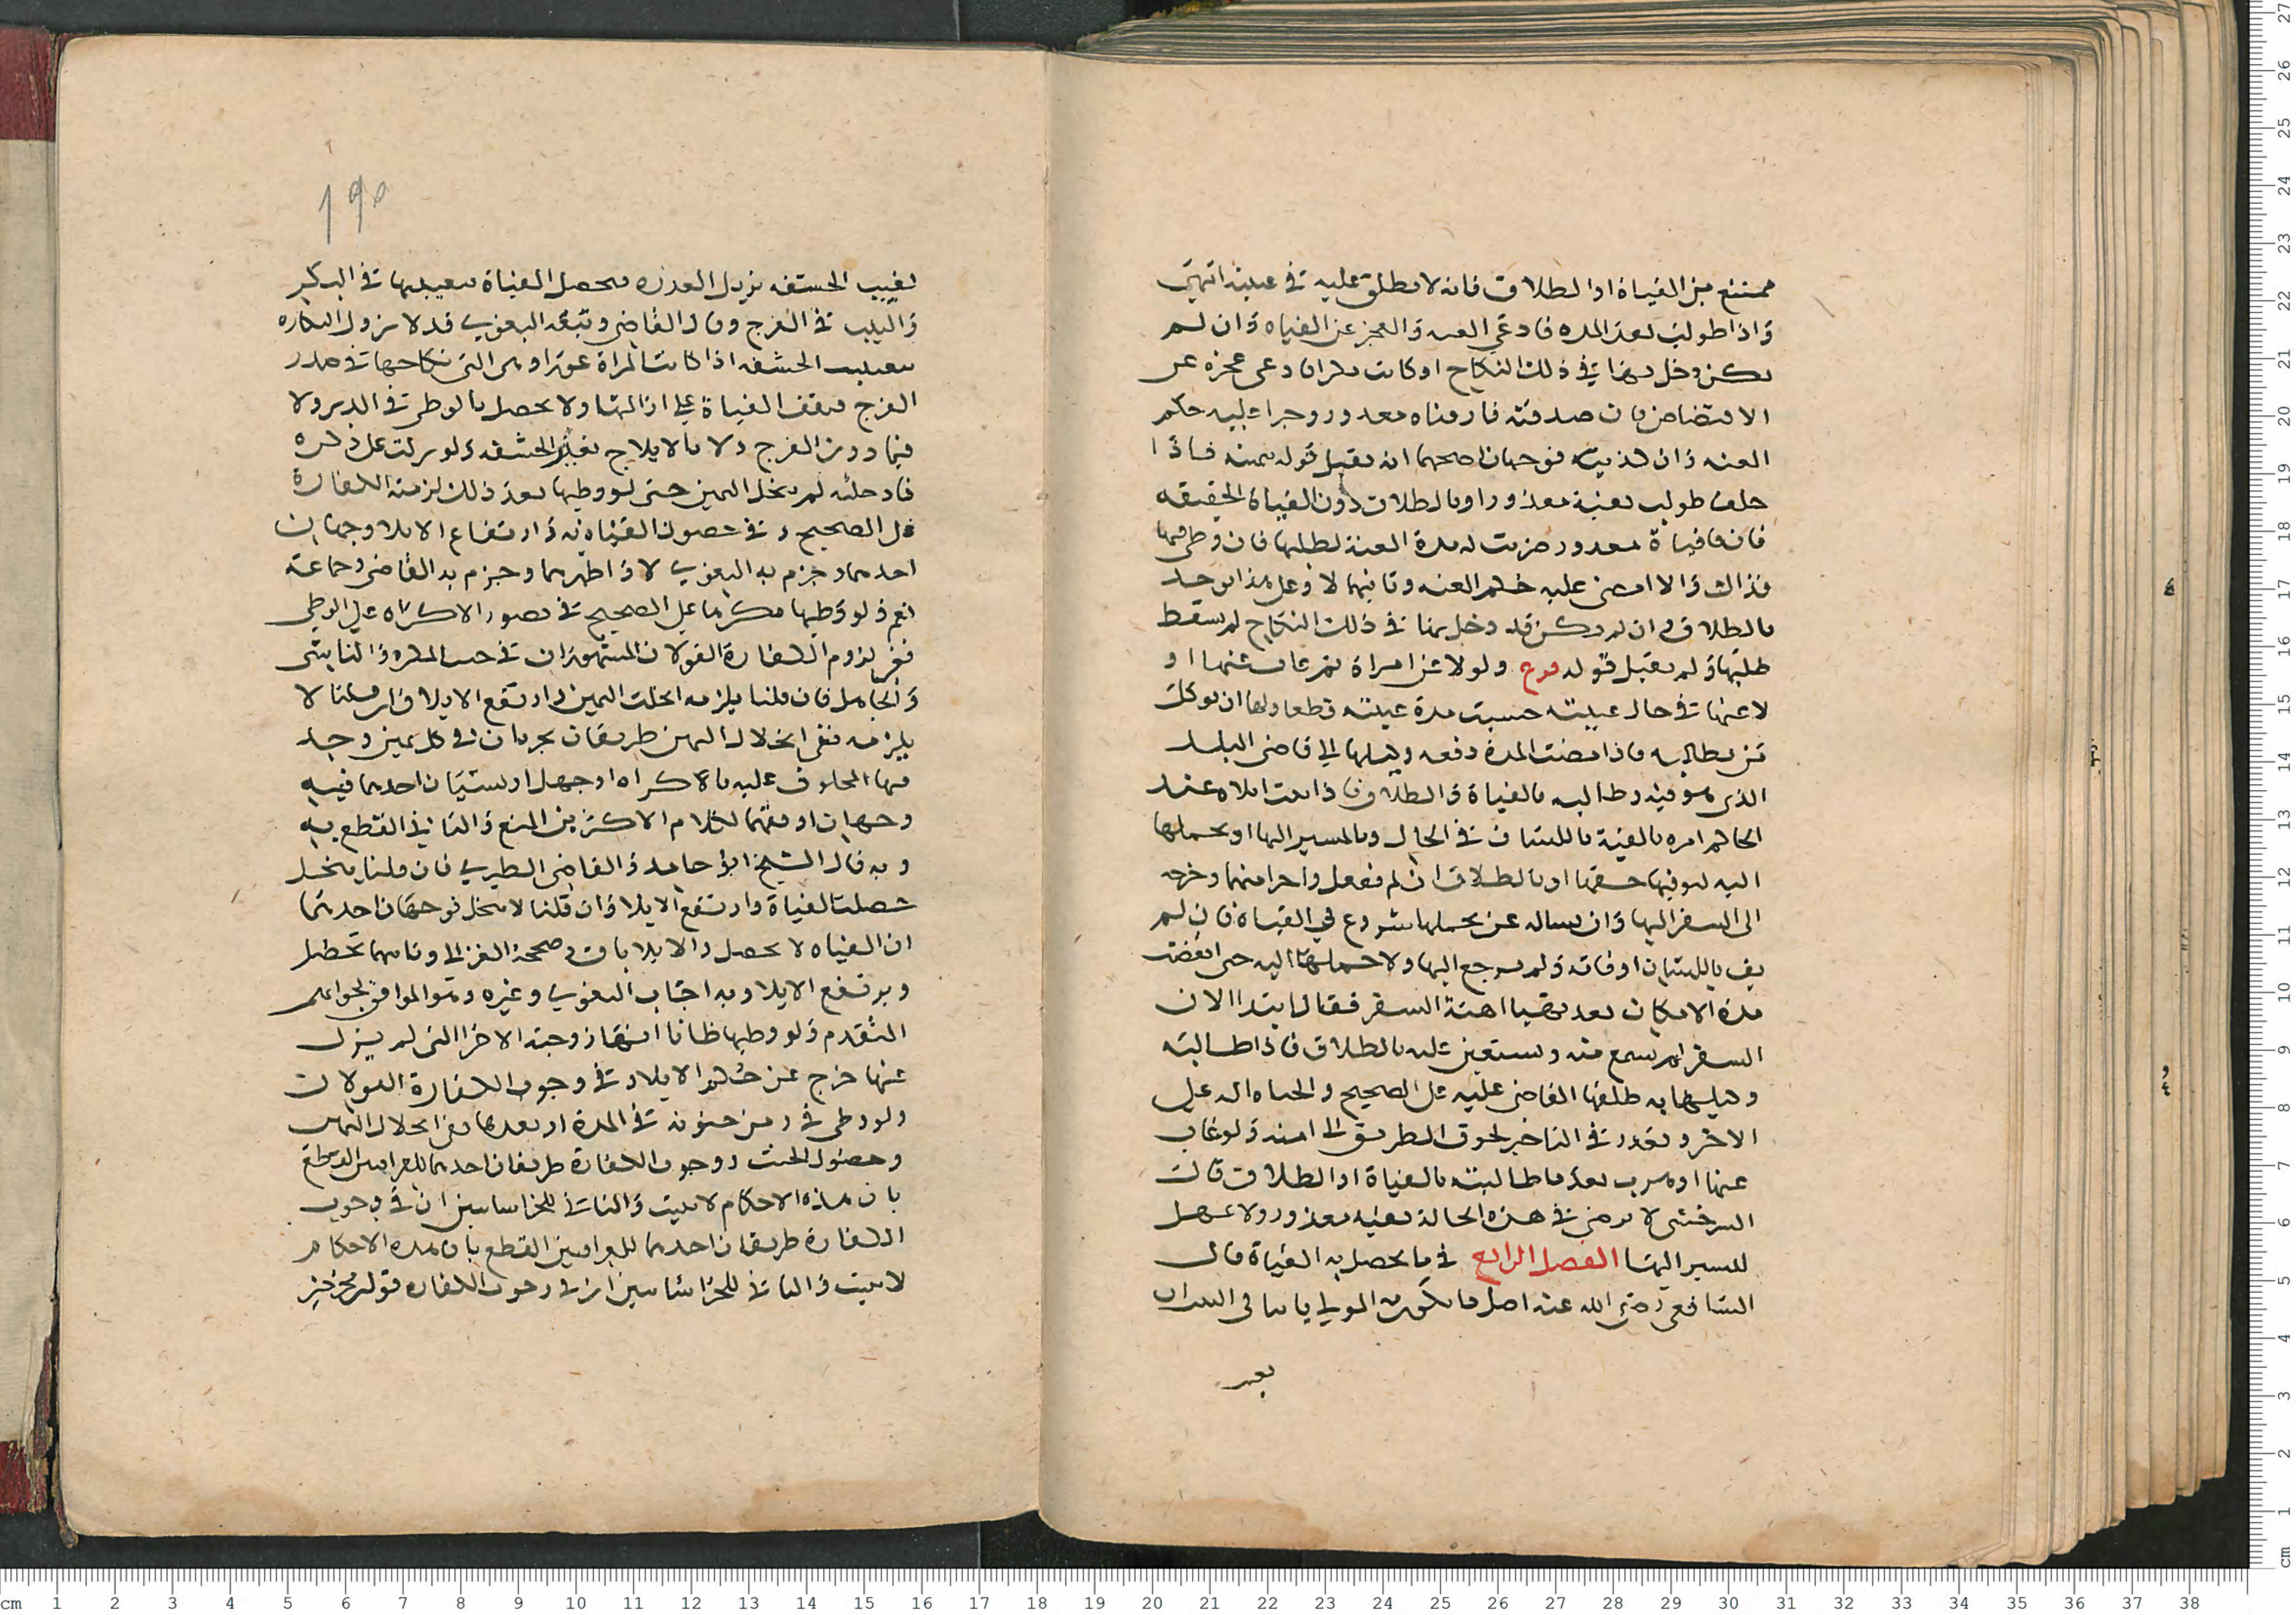 ممتنع من الفياة او الطلاق فانه لا يطلق عليه في غيبته انتهى
واذا طولب بعد المده فادعى العنه والعجز عن الفياه وان لم
يكن دخل بها في ذلك النكاح او كانت بكرا فادعى عجزه عن
الافتضاض فان صدقته فارفناه معذور وجرا عليه حكم
العنه وان كذبته فوجهان اصحهما انه يقبل قوله بيمينه فاذا
حلف طولب بفية معذور او بالطلاق دون الفياة الحقيقه
فان فا فياة معذور ضربت له مدة العنة لطلبها فان وطي فيها
فذاك والا امضى عليه حكم العنه وثانيهما لا وعلى هذا يوخذ
بالطلاق وان لم يكن قد دخل بها في ذلك النكاح لم يسقط
طلبها ولم يقبل قوله فرع ولو لاعن امراة ثم غاب عنها او
لاعنها في حال غيبته حسبت مدة غيبته قطعا ولها ان توكل
من يطالبه فاذا مضت المدة رفعه وكيلها الى قاضي البلد
الذي هو فيه وطالبه بالفياة والطلاق فاذا ثبت ايلاه عند
الحاكم امره بالفية باللسان في الحال وبالمسير اليها او بحملها
اليه ليوفيها حقها او بالطلاق ان لم يفعل واحدا منهما وخرجه
الى السفر اليها وان رساله عن يحملها شروع في الفياة فان لم
يف باللسان او فا به ولم يرجع اليها ولا حملها اليه حتى انقضت
مدة الامكان بعد تهيا اهبة السفر فقال ابتدا الان
السفر لم تسمع منه ويستعين عليه بالطلاق فاذا طالبته
وكيلها به طلقها القاضي عليه على الصحيح والحباه اله على
الاخر ويعذر في التاخير لخوف الطريق الى امنه ولو غاب
عنها او هرب بعد ما طالبته بالفياة او الطلاق قال
السرخسي لا يرضى في هذه الحالة بفيه معذور ولا يمهل
للسير اليها الفصل الرابع في ما يحصل به الفياة قال
الشافعي رضي الله عنه اصل ما يكون المولي يا سا في البدان
بغيب
١٩٥
تغييب الحشفه يزيل العذره فيحصل الفياة بتغييبها في البكر
والثيب في الفرج وقال القاضي وتبعه البغوي قد لا تزول البكاره
بتغييب الحشفه اذا كانت المراة عورا وهى التي نكاحها في صدر
الفرج فيقف الفياة على ازالتها ولا يحصل بالوطي في الدبر ولا
فيما دون الفرج ولا بالايلاج بغير الحشفه ولو نزلت على ذكره
فادخلته لم تنحل اليمين حتى لو وطيها بعد ذلك لزمته الكفارة
على الصحيح وفي حصول الفياه به وارتفاع الايلا وجهان
احدهما وجزم به البغوي لا واظهرهما وجزم به القاضي وجماعة
نعم ولو وطيها مكرها على الصحيح في تصور الاكراه على الوطي
ففي لزوم الكفارة القولان المشهوران في حنث المكره والناسي
والجاهل فان قلنا يلزمه انحلت اليمين وارتفع الايلا وان قلنا لا
يلزمه ففي انحلال اليمين طريقان يجريان في كل يمين وجد
فيها المحلوف عليه بالاكراه او جهل او نسيان احدهما فيه
وجهان اوفقهما لكلام الاكثرين المنع والثاني القطع به
وبه قال الشيخ ابو حامد والقاضي الطبري فان قلنا ينحل
حصلت الفياة وارتفع الايلا وان قلنا لا ينحل فوجهان احدهما
ان الفياه لا يحصل والايلا باق وصححه الغزالي وثانيهما تحصل
ويرتفع الايلا وبه اجاب البغوي وغيره وهو الموافق لجوابهم
المتقدم ولو وطيها ظانا انها زوجته الاخرا التي لم يزل
عنها خرج عن حكم الايلاء وفي وجوب الكفارة القولان
ولو وطي في زمن جنونه في المدة او بعدها ففي انحلال اليمين
وحصول الحنث ووجوب الكفارة طريقان احدهما للعراقيين القطع
بان هذه الاحكام لا تثبت والثاني للخراسانيين ان في وجوب
الكفارة طريقان احدهما للعراقيين القطع بان هذه الاحكام
لا تثبت والثاني للخراسانيين ان في وجوب الكفاره قولين مخرجين